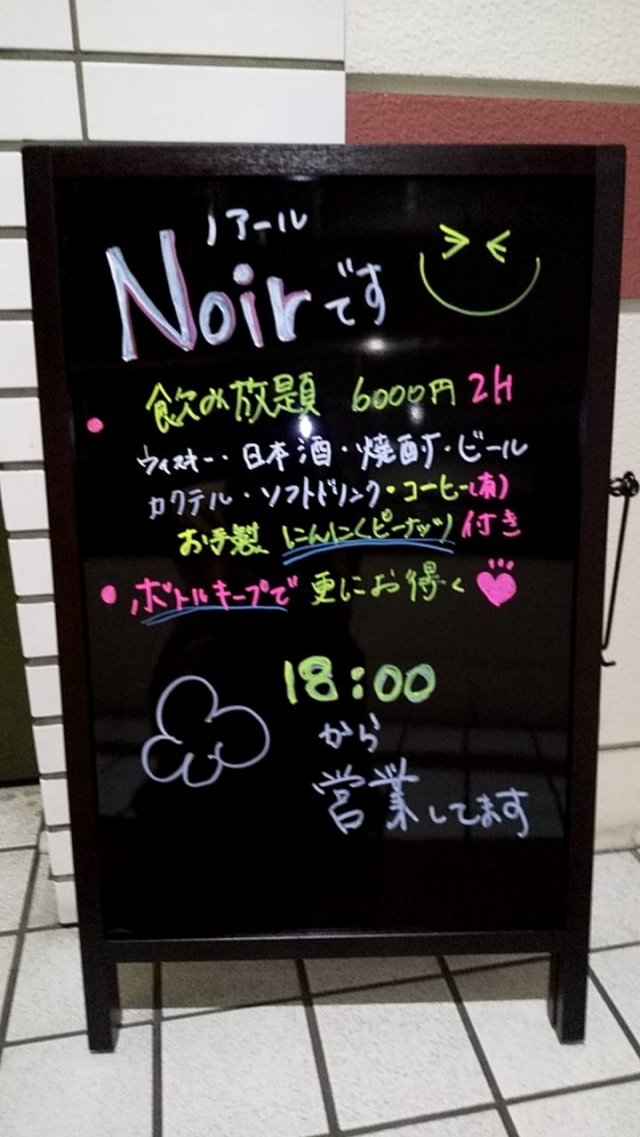 ノアール
Noirです
飲み放題 6000円 2H
ウィスキー・日本酒・焼酎・ビール
カクテル・ソフトドリンク・コーヒー(有)
お手製 にんにくピーナッツ付き
ボトルキープで 更にお得く
18:00
から
営業してます